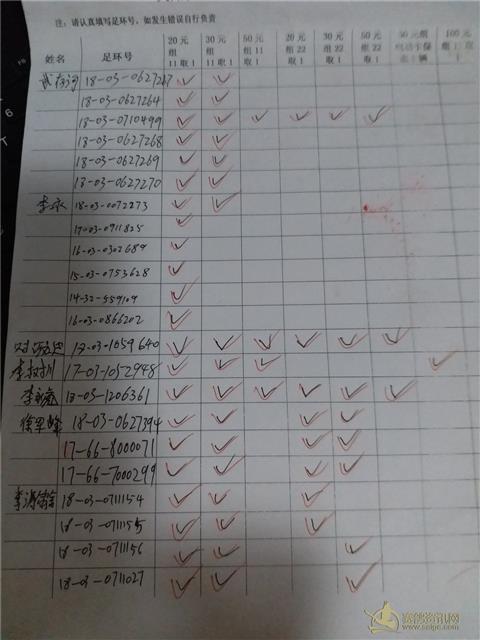 注：请认真填写足环号，如发生错误自行负责
姓名 足环号 20元组11取1 30元组11取1 50元组11取1 20元组22取1 30元组22取1 50元组22取1 50元组 1辆 100元组 取1
18-03-0627267 ✓ ✓
18-03-0627264 ✓ ✓
18-03-0710499 ✓ ✓ ✓ ✓ ✓ ✓
18-03-0627268 ✓ ✓
18-03-0627269 ✓ ✓
18-03-0627270 ✓ ✓
李永 18-03-0072273 ✓ ✓
17-03-0911825 ✓
16-03-0302689 ✓
15-03-0753628 ✓
14-32-559109 ✓
16-03-0866202 ✓
17-03-1059640 ✓ ✓ ✓ ✓ ✓ ✓
17-03-1052948 ✓ ✓ ✓ ✓
18-03-1206361 ✓ ✓ ✓ ✓ ✓ ✓
18-03-0627394 ✓ ✓ ✓ ✓
17-66-8000071 ✓ ✓ ✓ ✓
17-66-7000299 ✓ ✓ ✓ ✓
18-03-0711154 ✓ ✓ ✓
18-03-0711155 ✓ ✓ ✓
18-03-0711156 ✓ ✓ ✓
18-03-0711027 ✓ ✓ ✓
赛鸽资讯网
www.saige.com